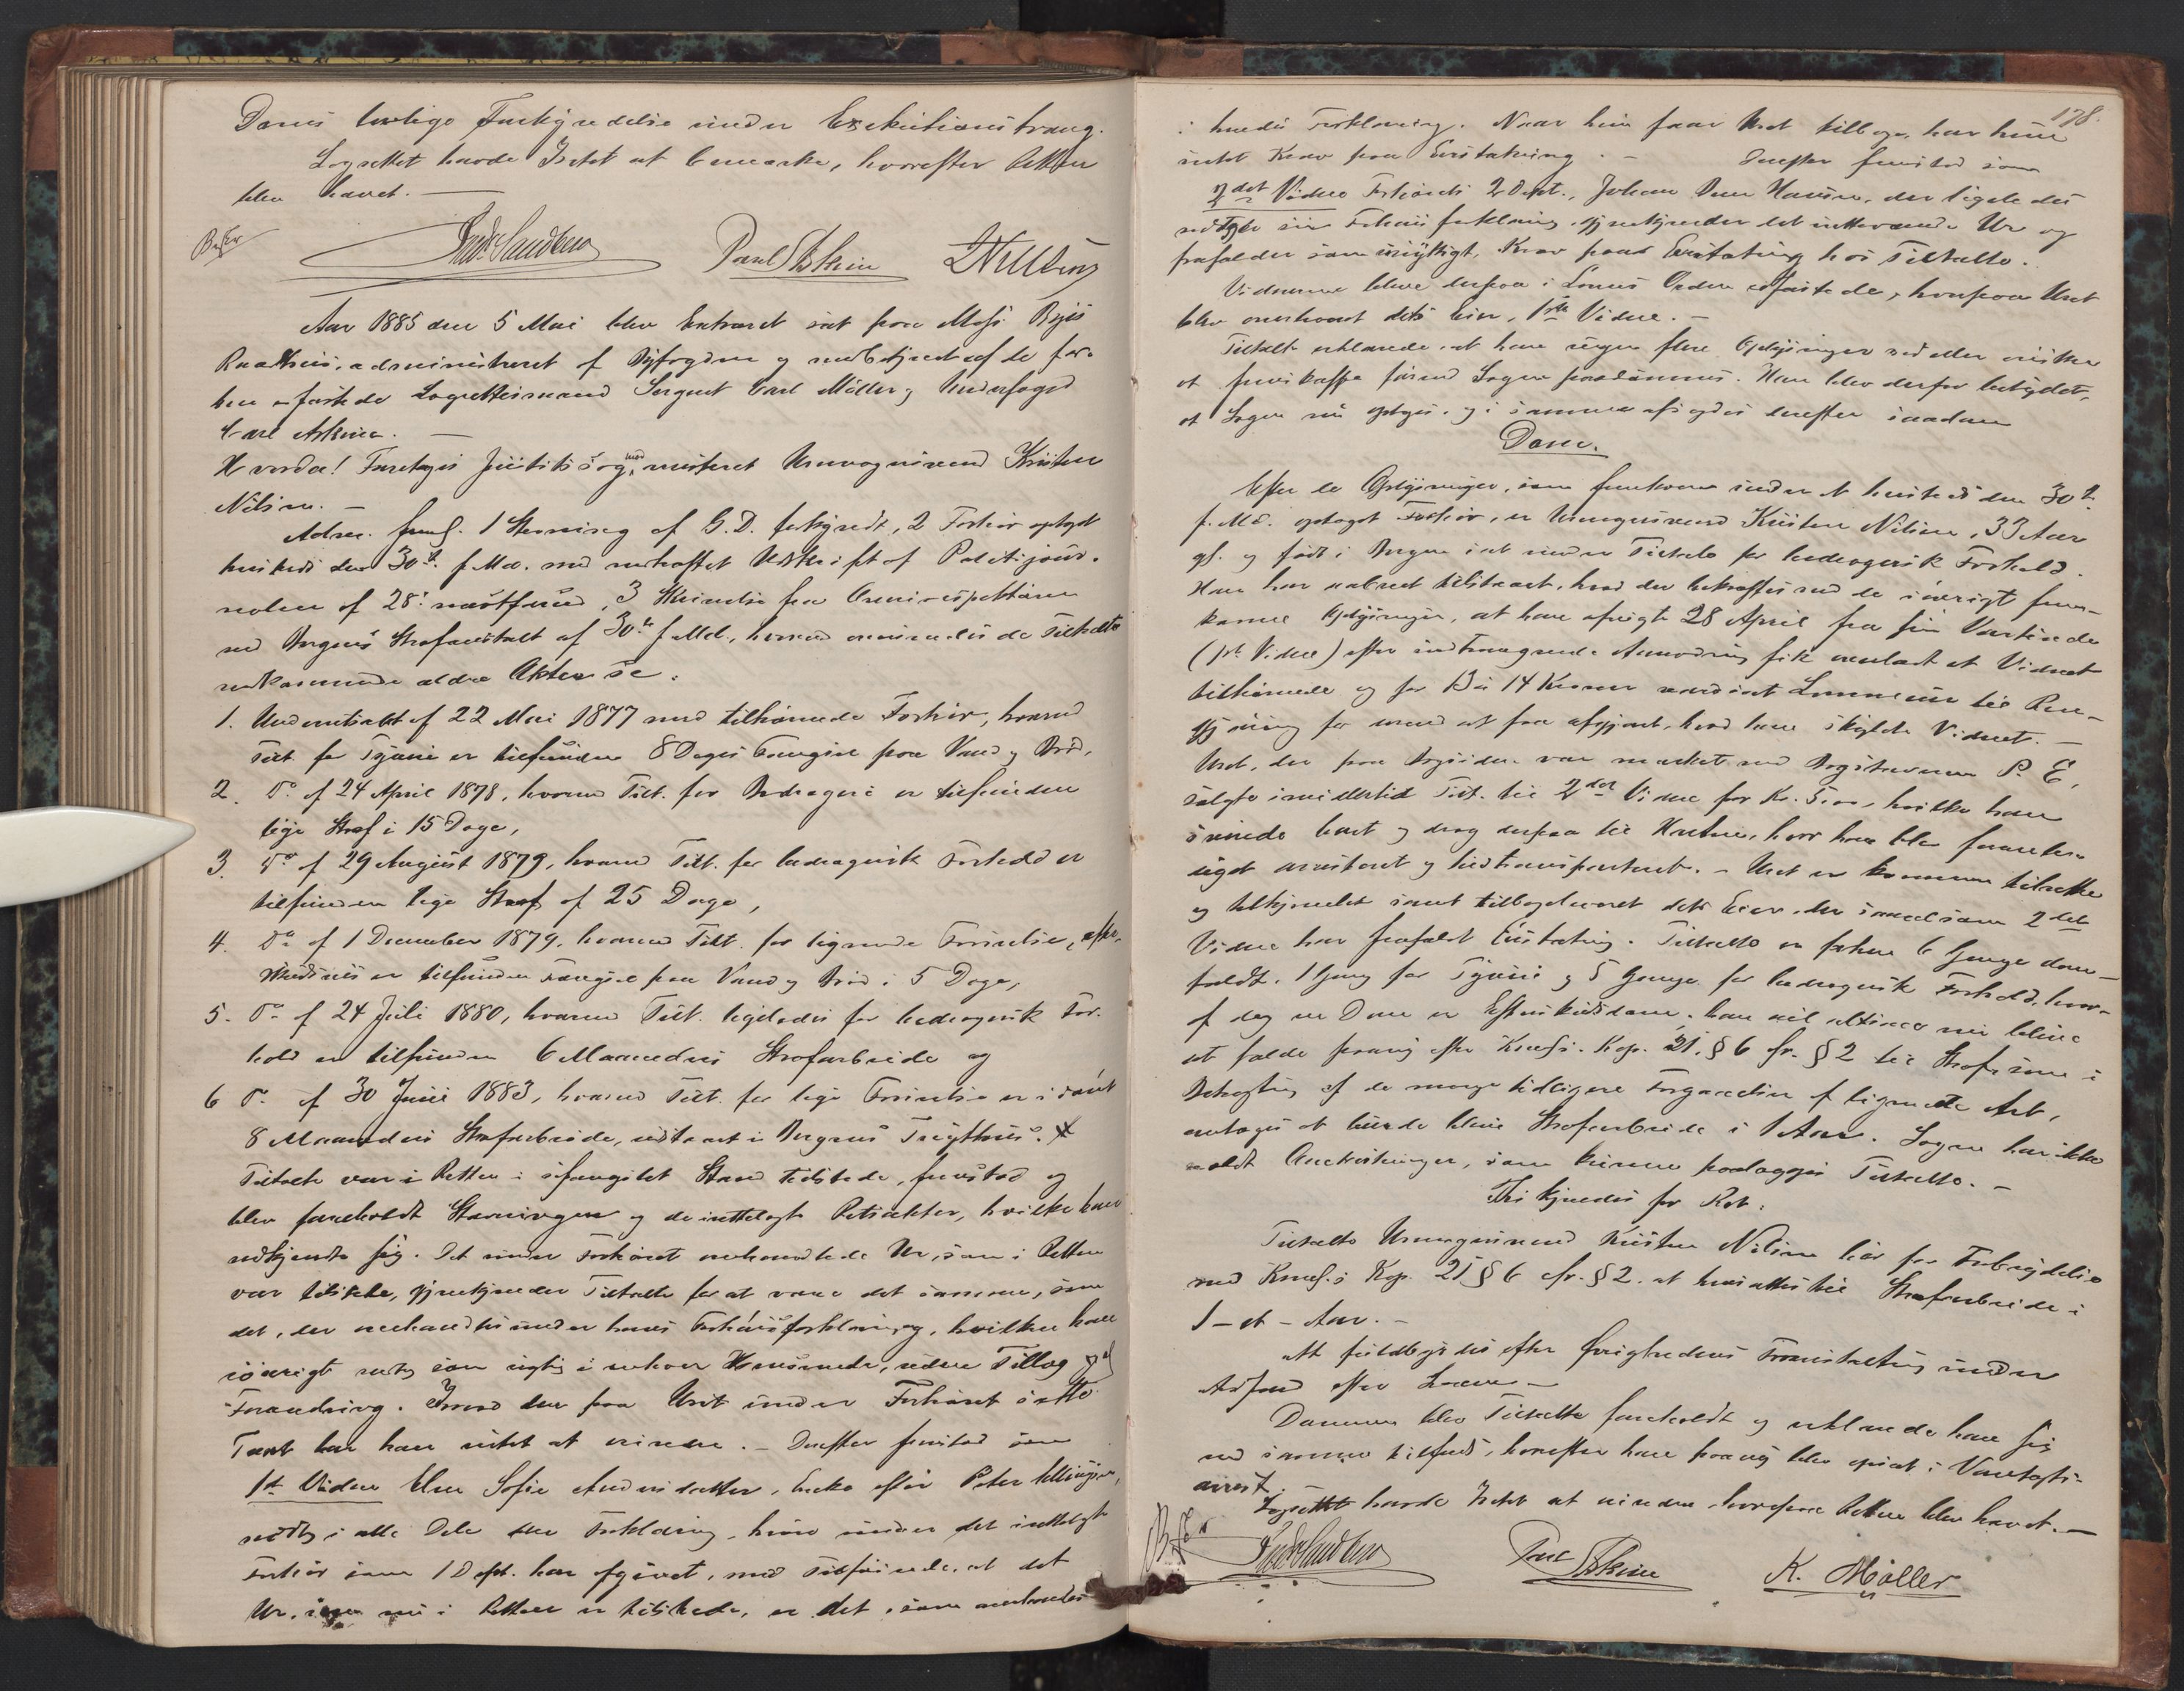 Doms lovlige Forkyndelse under Exekutionstvang.
Lagrettet havde Intet at bemærke, hvorefter Retten
blev hævet. —
Fredr Sandberg Paul Askvin
Aar 1885 den 5 Mai blev Extraret sat paa Byens
Raadhus, administreret af Byfogden og medbetjent af de for-
hen edfæstede Lagrettesmænd Sergent Carl Møller og Underfoged
Paul Askvin. —
Hvorda! Foretoges Justitssag mod arresteret Urmagersvend Kristen
Nilsen. —
Adm. freml. 1 Stævning af G.D. forkyndt, 2 Forhør optaget
herskeds den 30te f. Md. med vedhæftet Udskrift af Politijour-
nalen af 28. næstforrud, 3 Skrivelse fra Overinspektionen
ved Bergens Strafanstalt af 30te f. Md., hvorved oversendes de Tiltalte
vedkommende ældre Akter se:
1. Underretsakt af 22 Mai 1877 med tilhørende Forhør, hvorved
Tilt. for Tyveri er tilfunden 8 Dages Fængsel paa Vand og Brød,
2. Do af 24 April 1878, hvorved Tilt. for Bedrageri er tilfunden
lige Straf i 15 Dage,
3. Do af 29 August 1879, hvorved Tilt. for bedragersk Forhold er
tilfunden lige Straf af 25 Dage,
4. Do af 1 December 1879, hvorved Tilt. for lignende Forseelse, efter-
skudsvis er tilfunden Fængsel paa Vand og Brød i 5 Dage,
5. Do af 24 Juli 1880, hvorved Tilt. ligeledes for bedragersk For-
hold er tilfunden 6 Maaneders Strafarbeide og
6 Do af 30 Juni 1883, hvorved Tilt. for lige Forseelse er idømt
8 Maaneders Strafarbeide, udstaaet i Bergens Tugthus.
Tiltalte var i Retten i ufængslet Stand tilstede, fremstod og
blev foreholdt Stævningen og de irettelagte Retsakter, hvilke han
vedkjendte sig. Det under Forhøret omhandlede Ur, som i Retten
var tilstede, gjenkjender Tiltalte for at være det samme, som
det, der omhandles under hans Forhørsforklaring, hvilken han
iøvrigt vedtog som rigtig i enhver Henseende, uden Tillæg og
Forandring. Imod den paa Uret under Forhøret satte
Taxt har han intet at erindre. – Derefter fremstod som
1ste Vidne Elen Sofie Andersdatter, Enke efter Peter Ellingsen,
vedtog i alle Dele den Forklaring, hun under det irettelagte
Forhør som 1 Dept. har afgivet, med Tilføiende, at det
Ur, som nu i Retten er tilstede, er det, som omhandles
178.
i hendes Forklaring. Naar hun faar Uret tilbage, har hun
intet Krav paa Erstatning. – Derefter fremstod som
2det Vidne Forhørets 2 Dept., Johan Hansen, der ligeledes
vedtog sin Forhørsforklaring, gjenkjender det irettevær­ende Ur og
frafalder som unyttigt, Krav paa Erstatning hos Tiltalte.
Vidnerne bleve derpaa i Lovens Orden edfæstede, hvorpaa Uret
blev overleveret dets Eier, 1ste Vidne. –
Tiltalte erklærede, at han ingen flere Oplysninger ved eller ønsker
at fremskaffe førend Sagen paadømmes. Han blev derfor betydet,
at Sagen nu optages, og i samme afsagdes derefter saadan
Dom.
Efter de Oplysninger, som fremkom under et herskeds den 30te
f. Md. optaget Forhør, er Urmagersvend Kristen Nilsen, 33 Aar
gl. og født i Bergen sat under Tiltale for bedragersk Forhold.
Han har uden tilstaaet, hvad der bekræftes ved de iøvrigt frem-
komne Oplysninger, at han afvigte 28 April fra sin Vertinde
(1ste Vidne) efter indtrængende Anmodning fik overladt et Vidnet
tilhørende og for 13 à 14 Kroner værdsat Lommeur til Ren-
gjøring for med at faa afgjort, hvad han skyldte Vidnet. –
Uret, der paa Bagsiden var mærket med Bogstaverne P. E.,
solgte imidlertid Tilt. til 2det Vidne for Kr. 5.00, hvilke han
svirede bort og drog derpaa til , hvor han blev foranledi-
get arresteret og hidtransporteret. – Uret er kommet tilrette
og hjemlet samt tilbageleveret dets Eier, der saavelsom 2det
Vidne har frafaldt Erstatning. Tiltalte er forhen 6 Gange dom-
fældt, 1 Gang for Tyveri og 5 Gange for bedragersk Forhold, hvor-
af dog en Dom er Efterskudsdom, han vil altsaa nu blive
at fælde paany efter Krmls. Kap. 21. § 6 cfr. § 2 til Straf, som i
Betragtning af de mange tidligere Forgaaelser af lignende Art,
antages at burde blive Strafarbeide i 1 Aar. Sagen har ikke
voldt Omkostninger, som kunne paalægges Tiltalte. –
Thi kjendes for Ret:
Tiltalte Urmagersvend Kristen Nilsen bør for Forbrydelse
mod Krmls. Kap. 21 § 6 cfr. § 2. at hensættes til Strafarbeide i
1 – et – Aar. –
At fuldbyrdes efter Øvrighedens Foranstaltning under
Adfærd efter Loven –
Dommen blev Tiltalte foreholdt og erklærede han sig
med samme tilfreds, hvorefter han paany blev opsat i Varetægts-
arrest.
Lagrettet havde Intet at erindre, hvorpaa Retten blev hævet. —
Fredr Sandberg Paul Askvin K. Møller